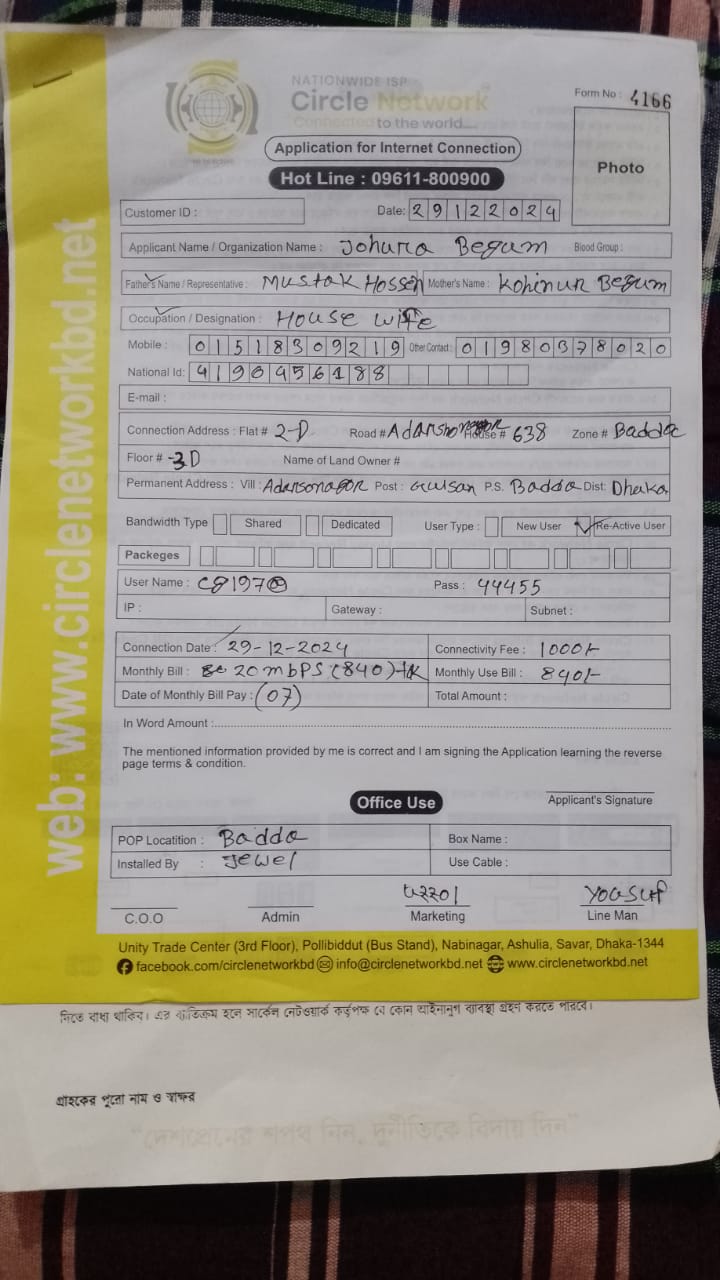 NATIONWIDE ISP
Circle Network
Connected to the world....
Form No : 4166
Application for Internet Connection
Photo
Hot Line : 09611-800900
Customer ID : Date: 29122024
Applicant Name / Organization Name : Johura Begum Blood Group :
Father's Name / Representative : Mustak Hossen Mother's Name : Kohinur Begum
Occupation / Designation : House wife
Mobile : 01518309219 Other Contact : 01980378020
National Id: 4196456188
E-mail :
Connection Address : Flat # 2-D Road # Adarsonagor House # 638 Zone # Badda
Floor # D Name of Land Owner #
Permanent Address : Vill : Adarsonagor Post : Gulsan P.S. Badda Dist: Dhaka
Bandwidth Type Shared Dedicated User Type : New User Re-Active User
Packeges
User Name : Pass : 44455
IP : Gateway : Subnet :
Connection Date : 29-12-2024 Connectivity Fee : 1000/-
Monthly Bill : 20mbps (840)-tk Monthly Use Bill : 840/-
Date of Monthly Bill Pay : (07) Total Amount :
In Word Amount :
The mentioned information provided by me is correct and I am signing the Application learning the reverse
page terms & condition.
Applicant's Signature
Office Use
POP Locatition : Badda Box Name :
Installed By : Jewel Use Cable :
Yousuf
C.O.O Admin Marketing Line Man
Unity Trade Center (3rd Floor), Pollibiddut (Bus Stand), Nabinagar, Ashulia, Savar, Dhaka-1344
facebook.com/circlenetworkbd info@circlenetworkbd.net www.circlenetworkbd.net
web: www.circlenetworkbd.net
নিতে বাধ্য থাকিব। এর ব্যতিক্রম হলে সার্কেল নেটওয়ার্ক কর্তৃপক্ষ যে কোন আইনানুগ ব্যবস্থা গ্রহণ করতে পারবে।
গ্রাহকের পুরো নাম ও স্বাক্ষর
"দেশপ্রেমের শপথ নিন, দুর্নীতিকে বিদায় দিন"